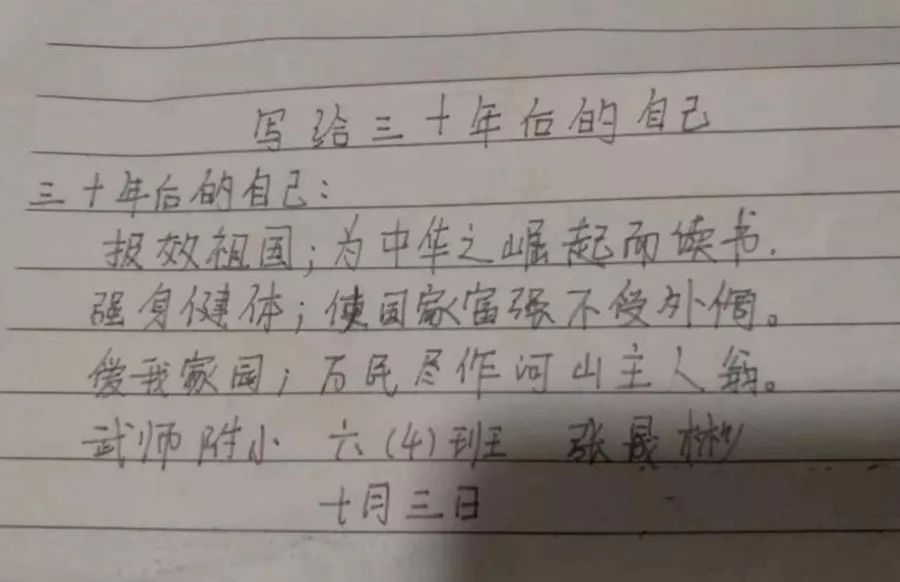 写给三十年后的自己
三十年后的自己：
报效祖国；为中华之崛起而读书.
强身健体；使国家富强不受外侮。
爱我家园；万民尽作河山主人翁。
武师附小 六(4)班 张晟彬
十月三日